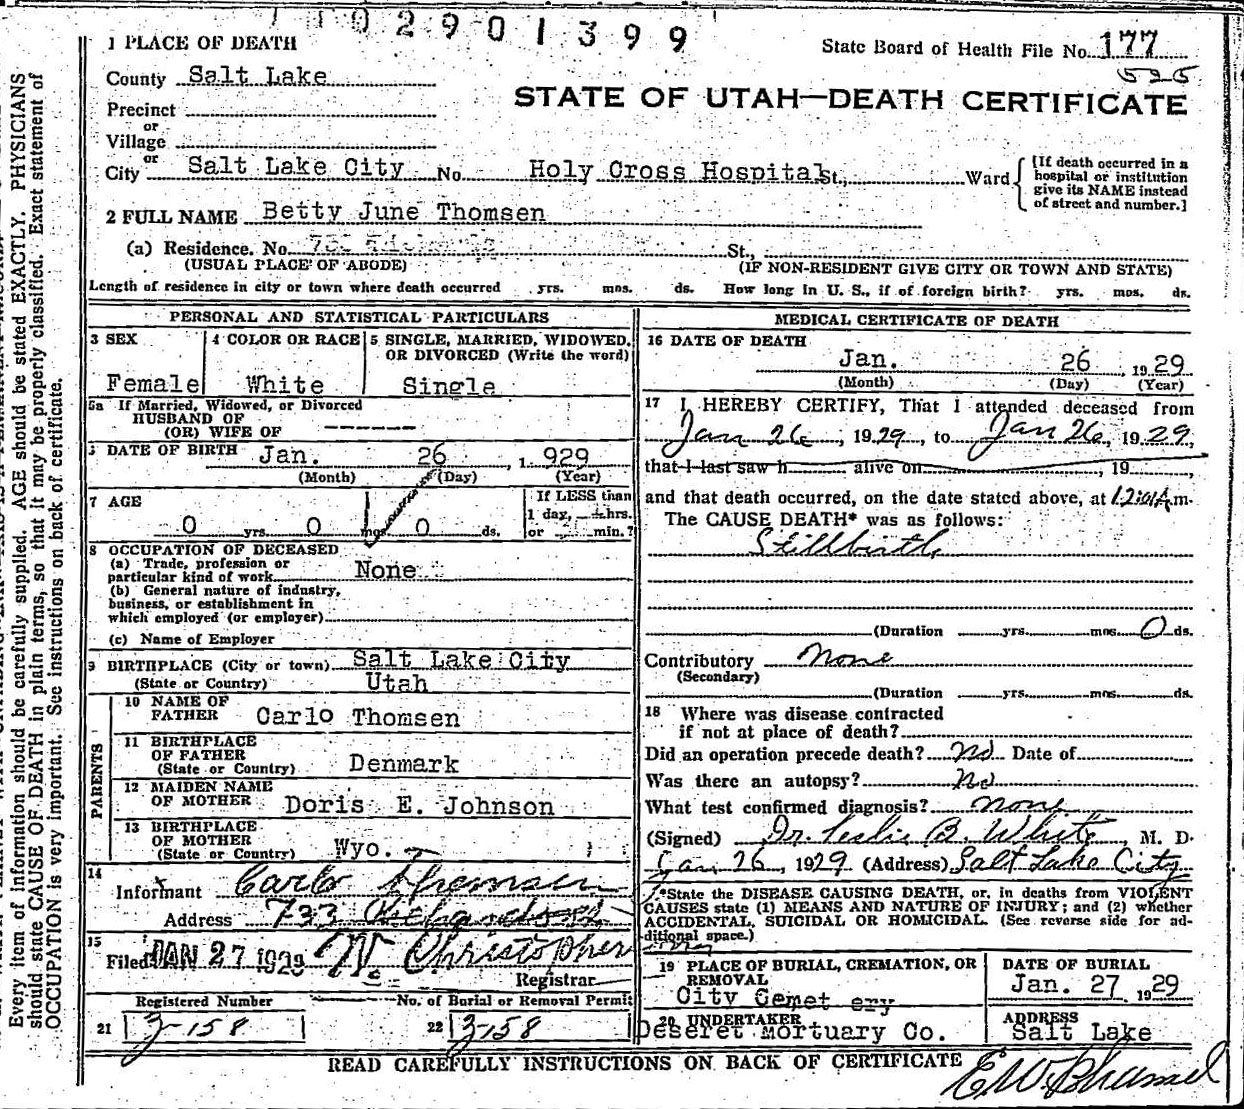 02901399
1 PLACE OF DEATH
State Board of Health File No. 177
525
County Salt Lake
STATE OF UTAH—DEATH CERTIFICATE
Precinct
or
Village
or
City Salt Lake City No. Holy Cross Hospital St., Ward
[If death occurred in a hospital or institution give its NAME instead of street and number.]
2 FULL NAME Betty June Thomsen
(a) Residence. No. St.,
(USUAL PLACE OF ABODE) (IF NON-RESIDENT GIVE CITY OR TOWN AND STATE)
Length of residence in city or town where death occurred yrs. mos. ds. How long in U. S., if of foreign birth? yrs. mos. ds.
PERSONAL AND STATISTICAL PARTICULARS
3 SEX
Female
4 COLOR OR RACE
White
5 SINGLE, MARRIED, WIDOWED,
OR DIVORCED (Write the word)
Single
5a If Married, Widowed, or Divorced
HUSBAND OF
(OR) WIFE OF ------
DATE OF BIRTH Jan. 26, 1929
(Month) (Day) (Year)
7 AGE
0 yrs. 0 mos. 0 ds.
If LESS than
1 day, hrs.
or min.?
8 OCCUPATION OF DECEASED
(a) Trade, profession or
particular kind of work None
(b) General nature of industry,
business, or establishment in
which employed (or employer)
(c) Name of Employer
9 BIRTHPLACE (City or town) Salt Lake City
(State or Country) Utah
PARENTS
10 NAME OF
FATHER Carlo Thomsen
11 BIRTHPLACE
OF FATHER
(State or Country) Denmark
12 MAIDEN NAME
OF MOTHER Doris E. Johnson
13 BIRTHPLACE
OF MOTHER
(State or Country) Wyo.
14
Informant Carlo Thomsen
Address 733 Richards St
15
Filed JAN 27 1929 W. Christopherson
Registrar
Registered Number
21 Z-158
No. of Burial or Removal Permit
22 Z-158
MEDICAL CERTIFICATE OF DEATH
16 DATE OF DEATH
Jan. 26, 1929
(Month) (Day) (Year)
17 I HEREBY CERTIFY, That I attended deceased from
Jan 26, 1929, to Jan 26, 1929,
that I last saw h alive on , 19 ,
and that death occurred, on the date stated above, at 12:01 A.m.
The CAUSE DEATH* was as follows:
Stillbirth
(Duration yrs. mos. 0 ds.
Contributory None
(Secondary)
(Duration yrs. mos. ds.
18 Where was disease contracted
if not at place of death?
Did an operation precede death? No Date of
Was there an autopsy? No
What test confirmed diagnosis? none
(Signed) Dr. Leslie B. White, M. D.
Jan 26, 1929 (Address) Salt Lake City
*State the DISEASE CAUSING DEATH, or, in deaths from VIOLENT
CAUSES state (1) MEANS AND NATURE OF INJURY; and (2) whether
ACCIDENTAL, SUICIDAL OR HOMICIDAL. (See reverse side for ad-
ditional space.)
19 PLACE OF BURIAL, CREMATION, OR
REMOVAL
City Cemetery
DATE OF BURIAL
Jan. 27 1929
20 UNDERTAKER
Deseret Mortuary Co.
ADDRESS
Salt Lake
READ CAREFULLY INSTRUCTIONS ON BACK OF CERTIFICATE
Every item of information should be carefully supplied. AGE should be stated EXACTLY. PHYSICIANS
should state CAUSE OF DEATH in plain terms, so that it may be properly classified. Exact statement of
OCCUPATION is very important. See instructions on back of certificate.